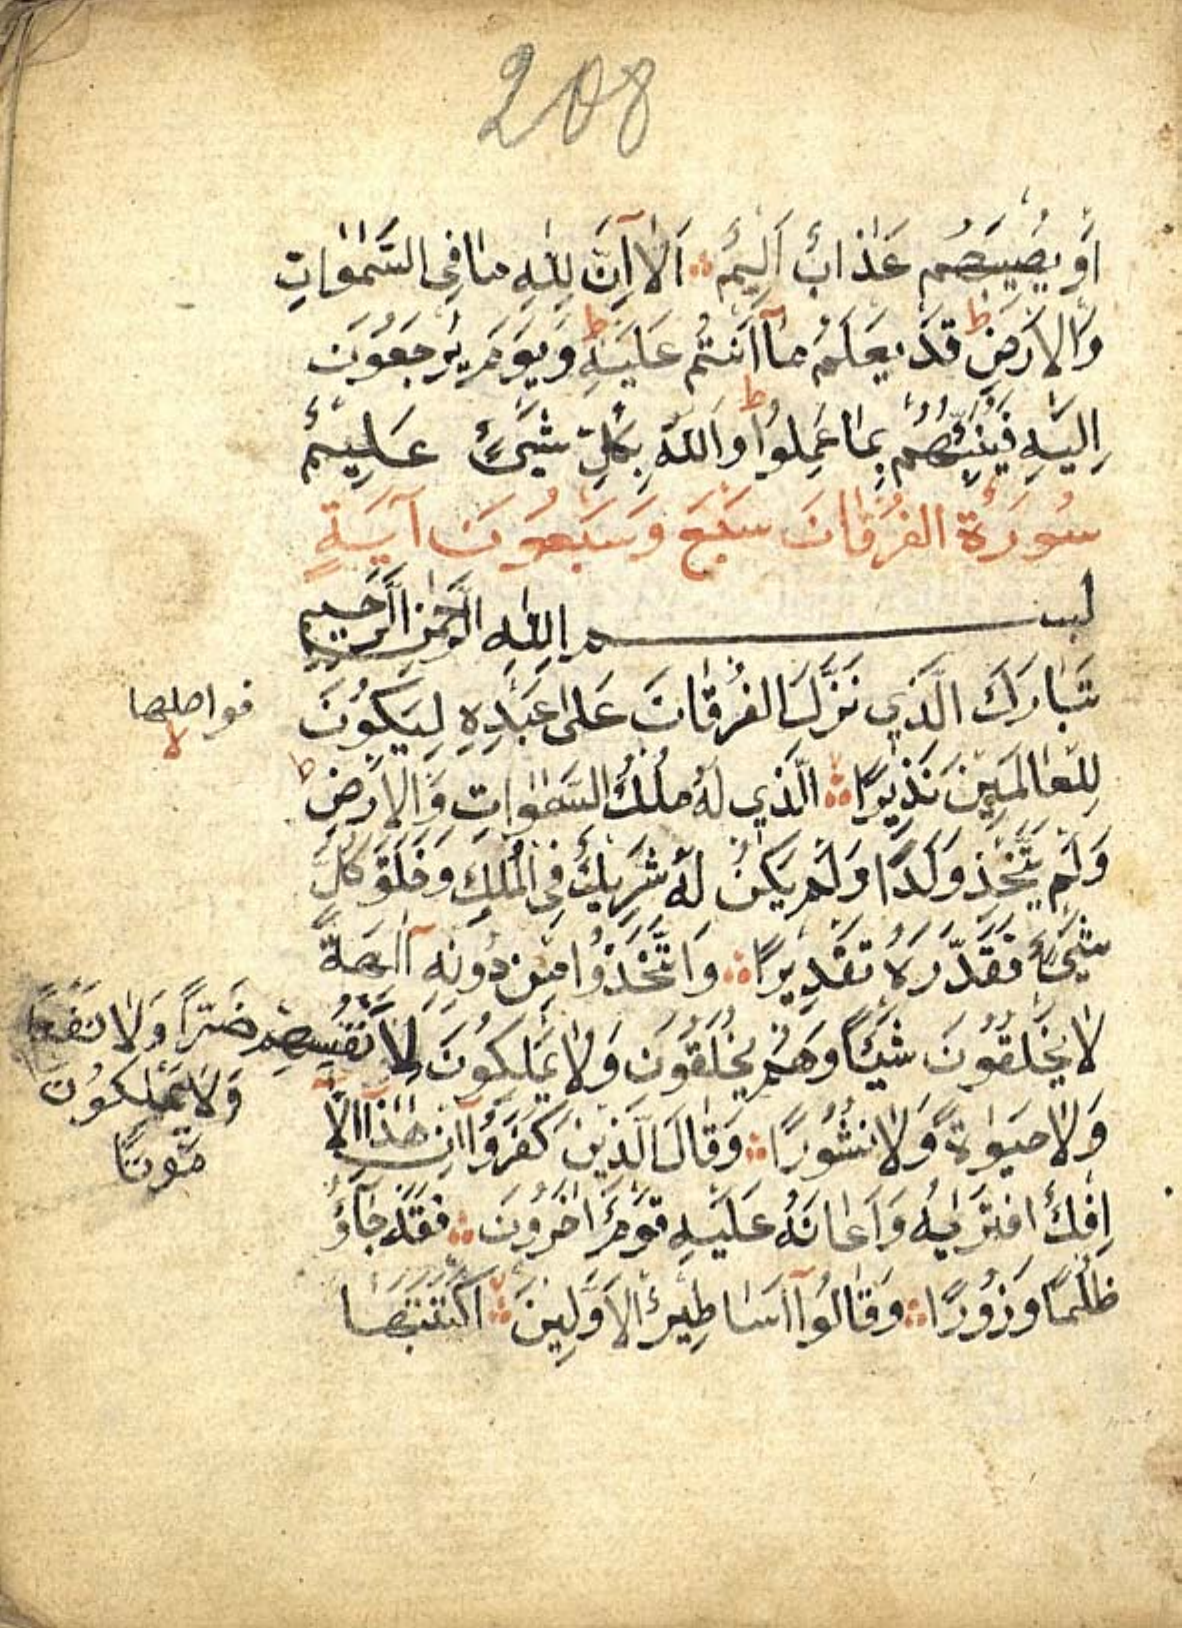 208
اَوْ يُصِيبَهُمْ عَذَابٌ اَلِيمٌ اَلَآ اِنَّ لِلّٰهِ مَا فِى السَّمٰوَاتِ
وَالْاَرْضِ ط قَدْ يَعْلَمُ مَآ اَنْتُمْ عَلَيْهِ ط وَيَوْمَ يُرْجَعُونَ
اِلَيْهِ فَيُنَبِّئُهُمْ بِمَا عَمِلُوا ط وَاللّٰهُ بِكُلِّ شَيْءٍ عَلِيمٌ
سُورَةُ الْفُرْقَانِ سَبْعَ وَسَبْعُونَ آيَةٍ
بسم اللّٰهِ الرَّحْمٰنِ الرَّحِيمِ
تَبَارَكَ الَّذِي نَزَّلَ الْفُرْقَانَ عَلٰى عَبْدِهِ لِيَكُونَ
فواصلها
لا
لِلْعَالَمِينَ نَذِيرًا لا الَّذِي لَهُ مُلْكُ السَّمٰوَاتِ وَالْاَرْضِ ط
وَلَمْ يَتَّخِذْ وَلَدًا وَلَمْ يَكُنْ لَهُ شَرِيكٌ فِى الْمُلْكِ وَخَلَقَ كُلَّ
شَيْءٍ فَقَدَّرَهُ تَقْدِيرًا وَاتَّخَذُوا مِنْ دُونِهِ آلِهَةً
لَا يَخْلُقُونَ شَيْئًا وَهُمْ يُخْلَقُونَ وَلَا يَمْلِكُونَ لِاَنْفُسِهِمْ ضَرًّا وَلَا نَفْعًا
وَلَا يَمْلِكُونَ
مَوْتًا
وَلَا حَيٰوةً وَلَا نُشُورًا وَقَالَ الَّذِينَ كَفَرُوآ اِنْ هٰذَآ اِلَّا
اِفْكٌ افْتَرٰيهُ وَاَعَانَهُ عَلَيْهِ قَوْمٌ اٰخَرُونَ فَقَدْ جَآؤُ
ظُلْمًا وَزُورًا وَقَالُوآ اَسَاطِيرُ الْاَوَّلِينَ اكْتَتَبَهَا